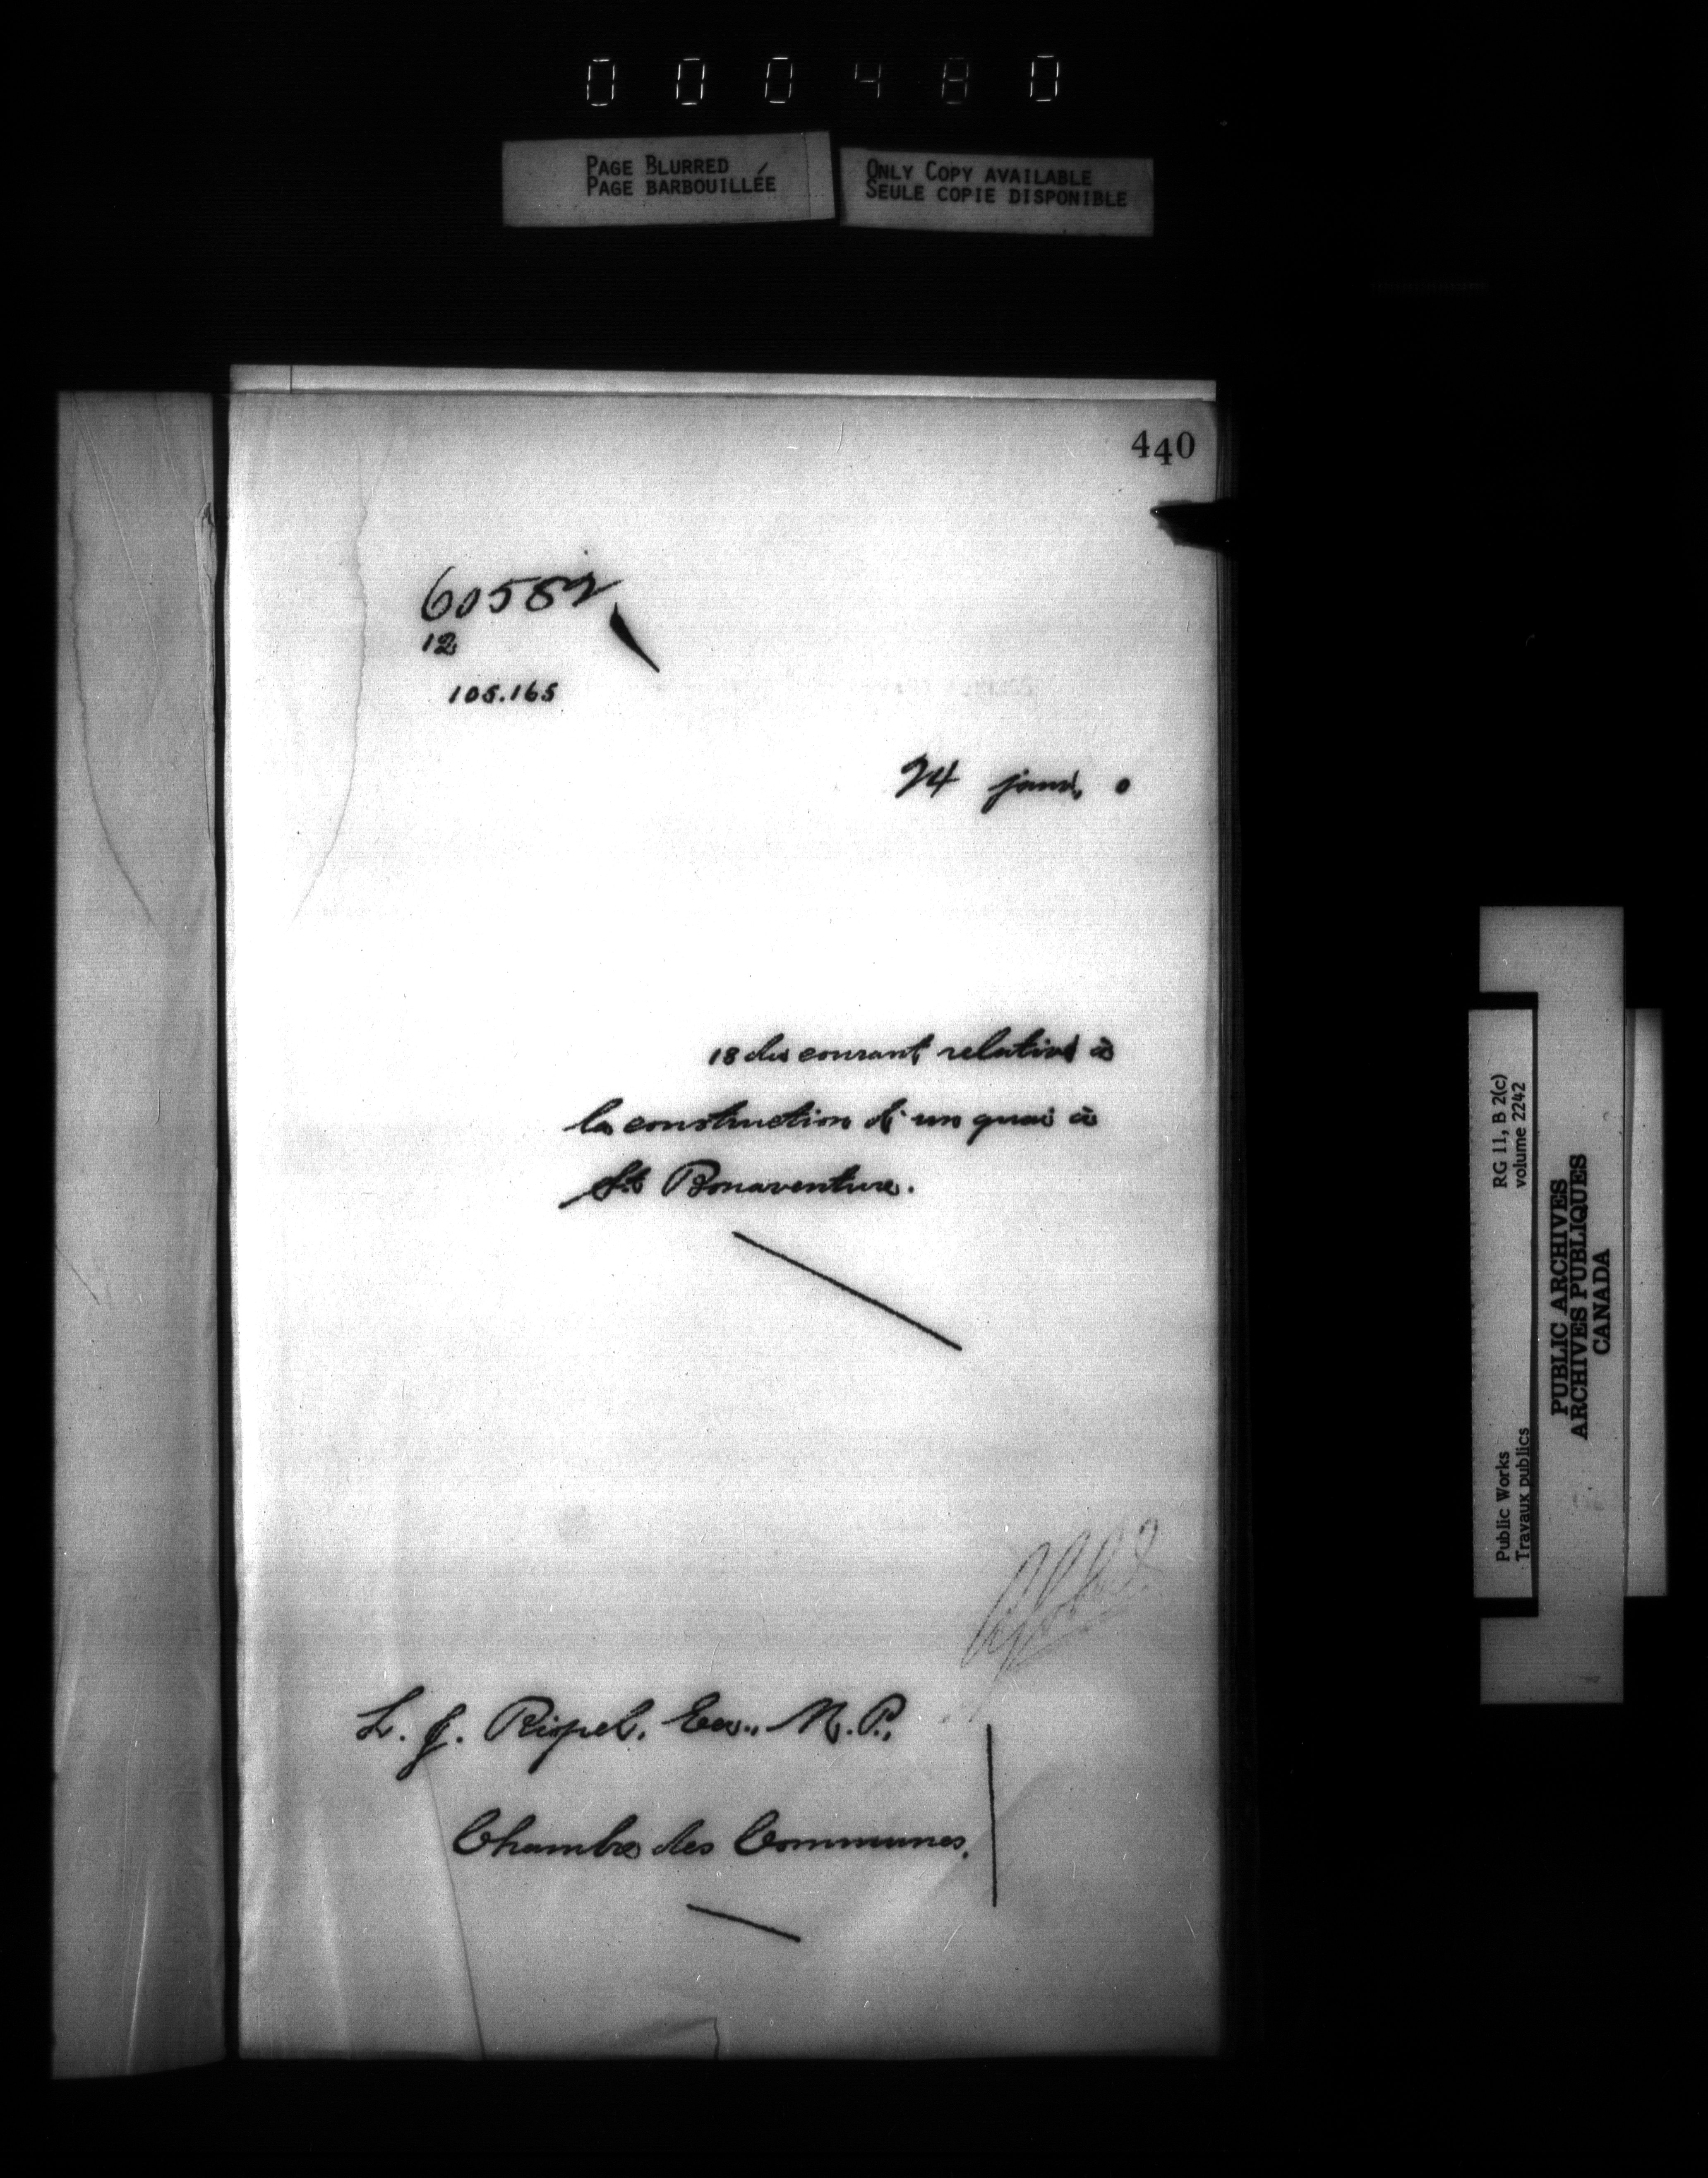 000480
PAGE BLURRED
PAGE BARBOUILLÉE
ONLY COPY AVAILABLE
SEULE COPIE DISPONIBLE
440
60582
12
105.165
24 janv. 0
18 du courant relative à
la construction d'un quai à
St Bonaventure.
L. J. Riopel, Ecr., M.P.,
Chambre des Communes.
RG 11, B 2(c)
volume 2242
Public Works
Travaux publics
PUBLIC ARCHIVES
ARCHIVES PUBLIQUES
CANADA